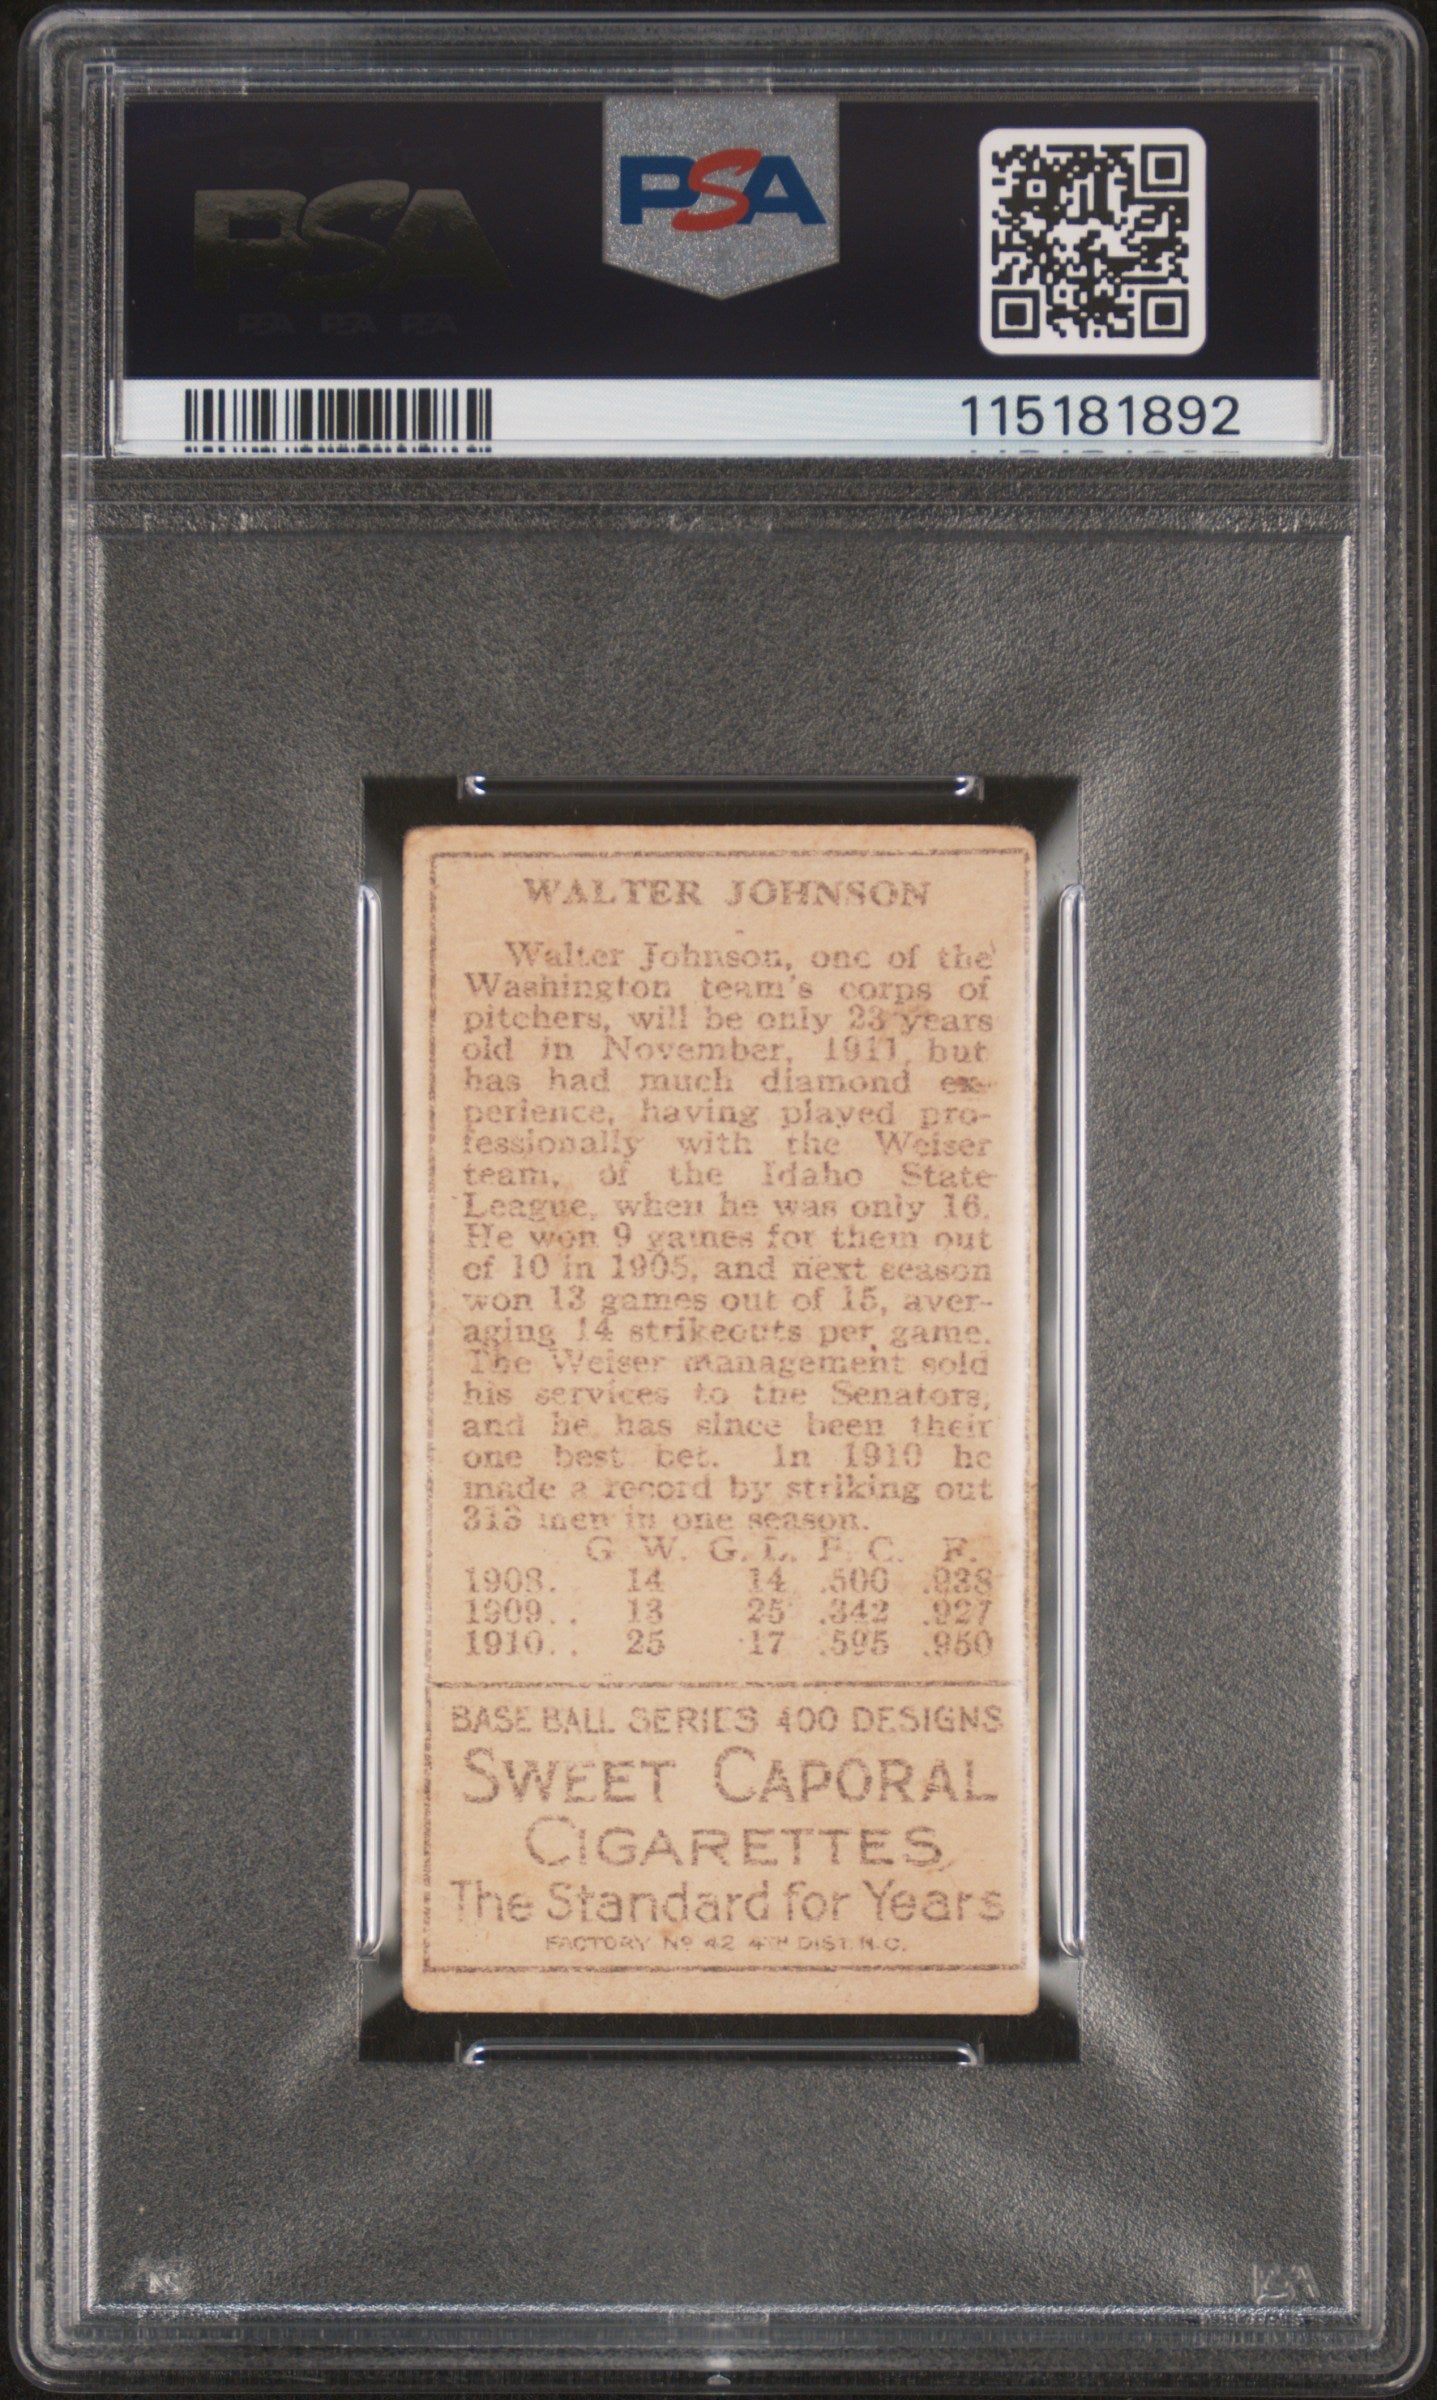 PSA
PSA
115181892
WALTER JOHNSON
Walter Johnson, one of the
Washington team's corps of
pitchers, will be only 23 years
old in November, 1911, but
has had much diamond ex-
perience, having played pro-
fessionally with the Weiser
team, of the Idaho State
League, when he was only 16.
He won 9 games for them out
of 10 in 1905, and next season
won 13 games out of 15, aver-
aging 14 strikeouts per game.
The Weiser management sold
his services to the Senators,
and he has since been their
one best bet. In 1910 he
made a record by striking out
313 men in one season.
G. W. G. L. P. C. F.
1908.. 14 14 .500 .938
1909.. 13 25 .342 .927
1910.. 25 17 .595 .950
BASE BALL SERIES 400 DESIGNS
SWEET CAPORAL
CIGARETTES
The Standard for Years
FACTORY Nº 42 4TH DIST. N.C.